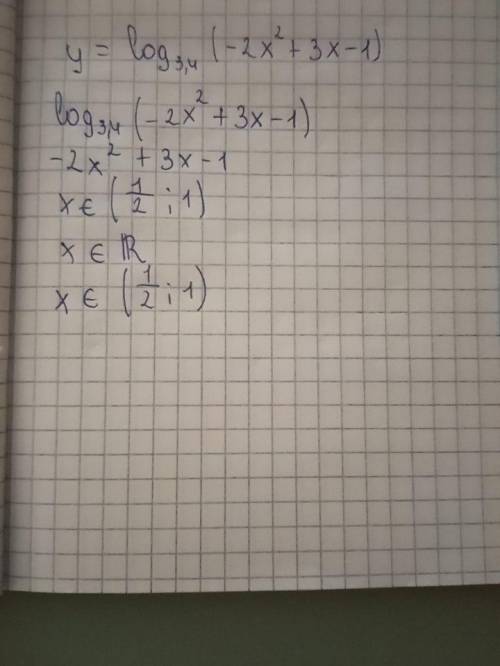 y = log₃,₄ (-2x² + 3x - 1)
log₃,₄ (-2x² + 3x - 1)
-2x² + 3x - 1
x ∈ (1/2 ; 1)
x ∈ ℝ
x ∈ (1/2 ; 1)